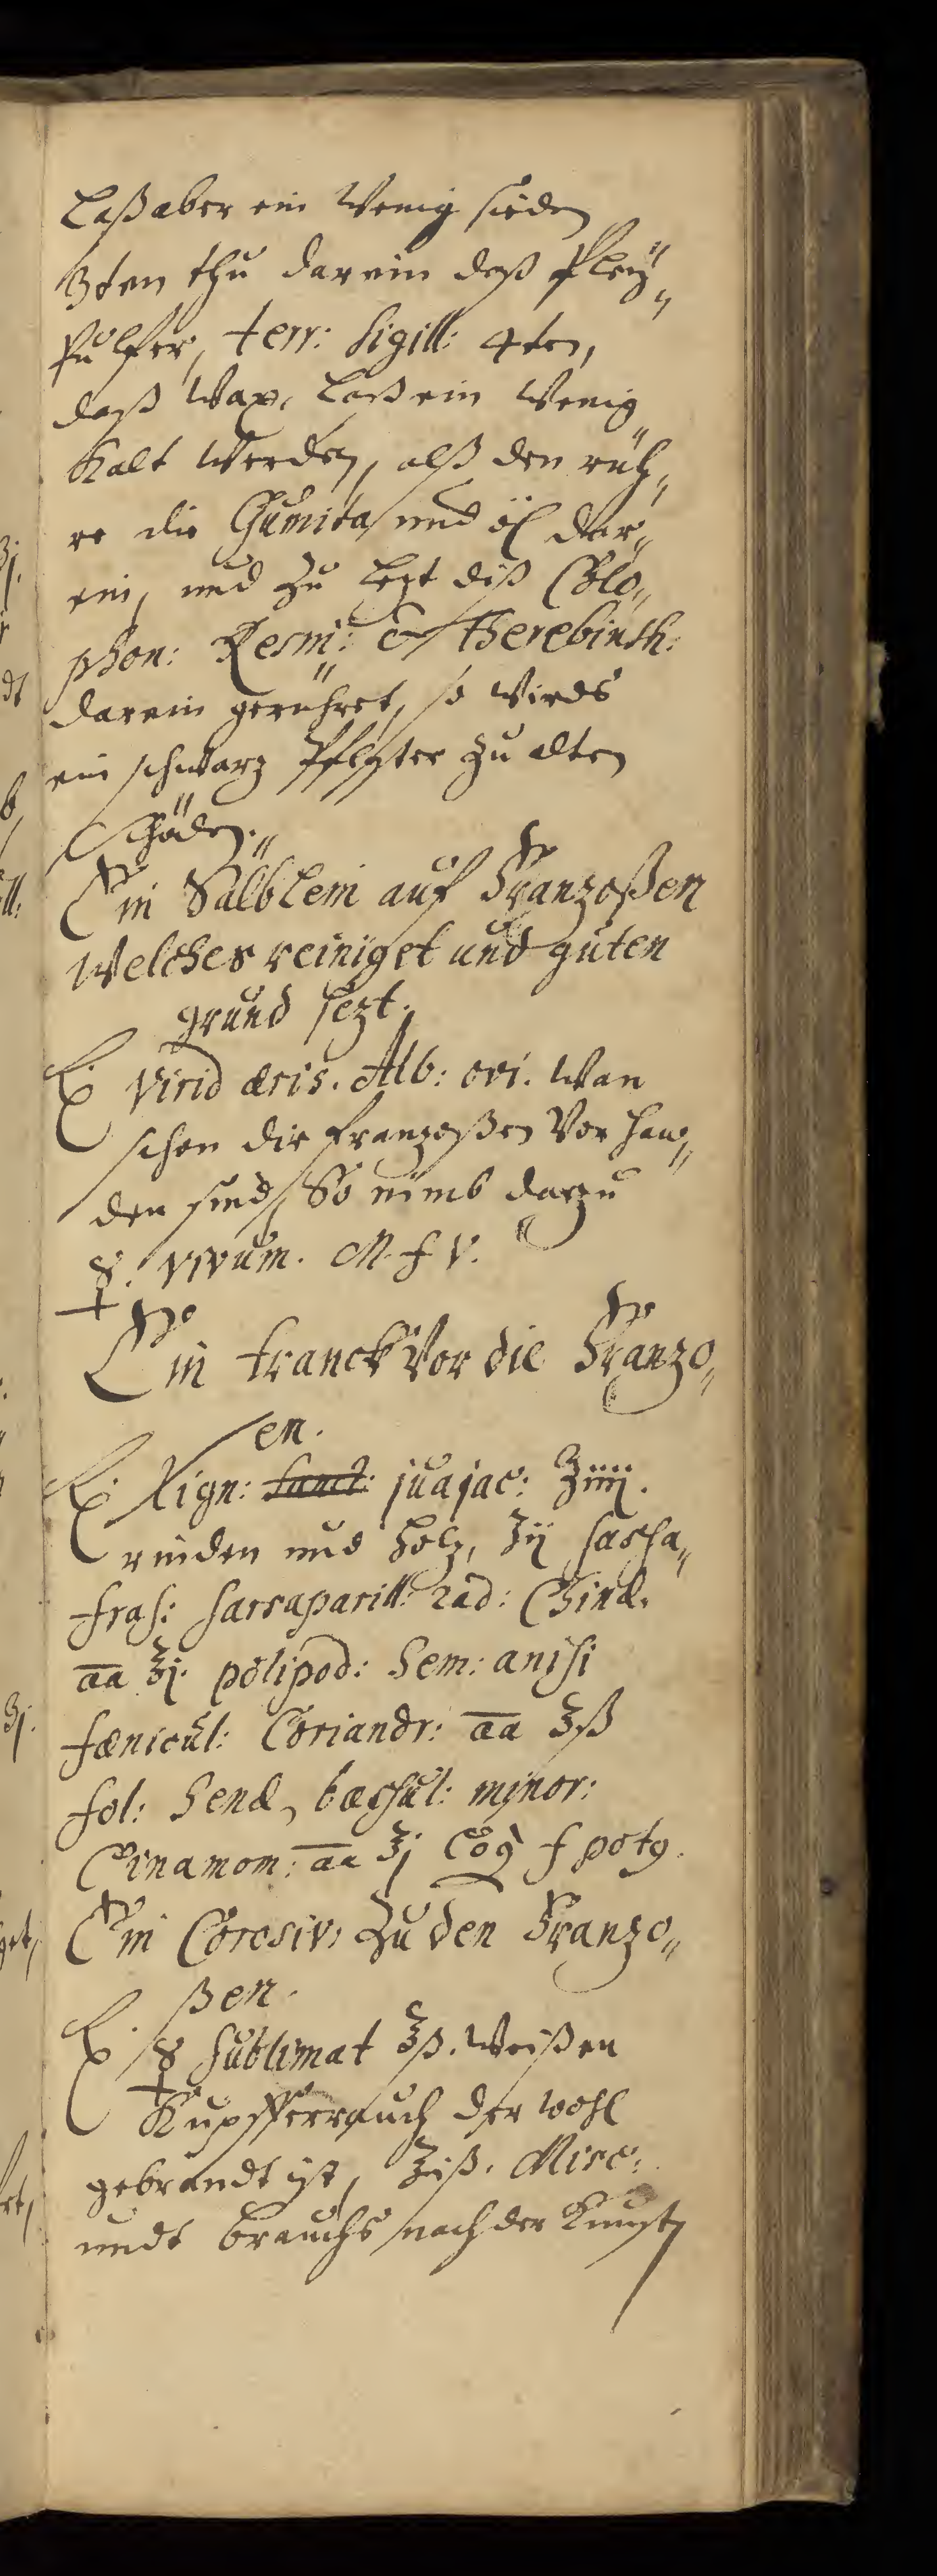 Laß aber ein Wenig sieden
3ten thu darein daß Pleÿ„
pulfer, terr: Sigill: 4ten,
daß Wax, Laß ein Wenig
Kalt Werden, alß den rüh„
re die Gumita, und öl dar„
ein, und zu Lezt diß Colo„
phon: Resini: & Therebinth:
darein gerühret, so Wirds
ein schwarz Pflaster zu alten
Schäden.
Ein Sälblein auf Franzoßen
Welches reiniget und guten
grund sezt.
℞. Virid æris. Alb: ovi. Wan
schon die franzoßen Vor han„
den sind, So nimb darzu
☿. vivum. M. f V.
Ein tranck Vor die Franzo„
sen.
℞. Lign: Sanct: juajac: ℥iiij.
rinden und holz, ℥ij sassa„
fras: sarsaparill: rad: Chinæ.
aa ℥j. polipod: Sem: anisi
fænicul: Coriandr: aa ℥ß
fol: Senæ, bacsul: minor:
Cinamom: aa ℥j Coq f potg.
Ein Corosiv, Zu den Franzo„
ßen.
℞. ☿ Sublimat ℥ß. Weißen
Kupfferrauch der wohl
gebrandt ist, ℥iß. Misc:
undt brauchs nach der Kunst